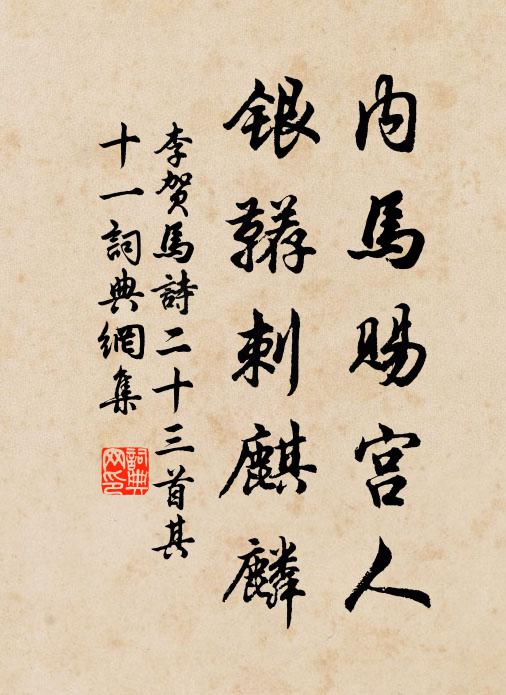 内馬賜宫人
銀韉刺麒麟
李賀馬詩二十三首其
十一詞典網集
詞典网印